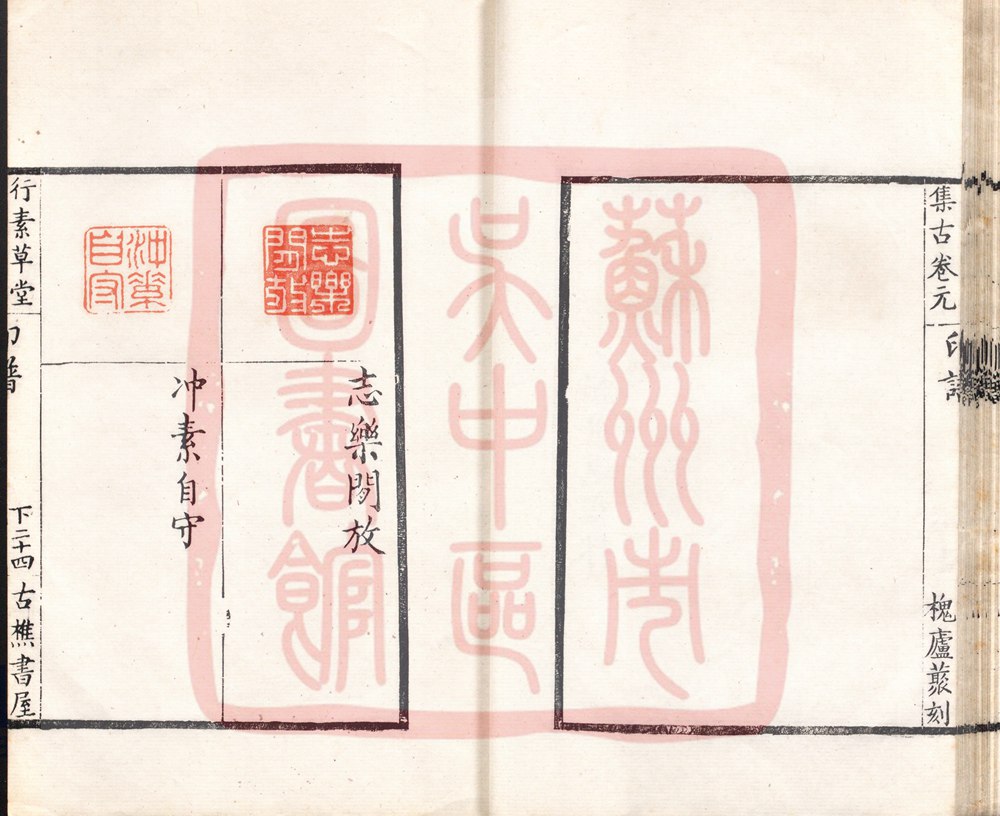 集古卷元
印譜
槐廬叢刻
蘇州市
吳中區
圖書館
志樂閒放
志樂閒放
冲素自守
冲素自守
行素草堂
印譜
下二十四
古樵書屋